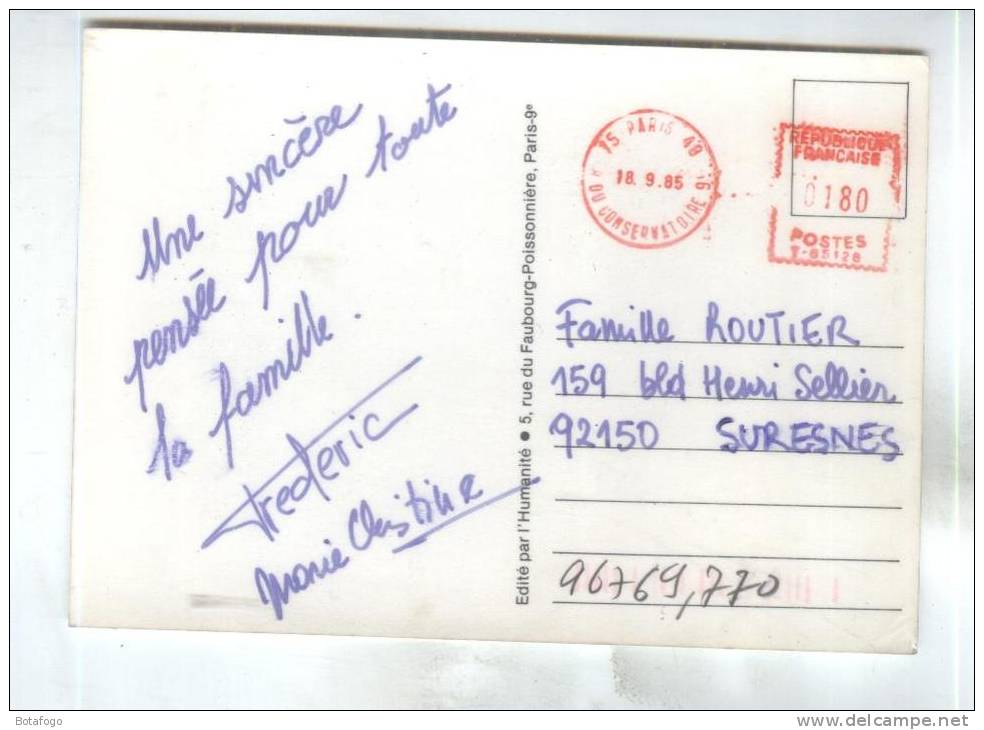 Une sincère
pensée pour toute
la famille.
Frederic
Marie Christine
Edité par l'Humanité ● 5, rue du Faubourg-Poissonnière, Paris-9e
75 PARIS 48
18. 9.85
R DU CONSERVATOIRE 9E
REPUBLIQUE
FRANCAISE
0180
POSTES
T-65128
Famille ROUTIER
159 bld Henri Sellier
92150 SURESNES
96769,770
Botafogo
www.delcampe.net